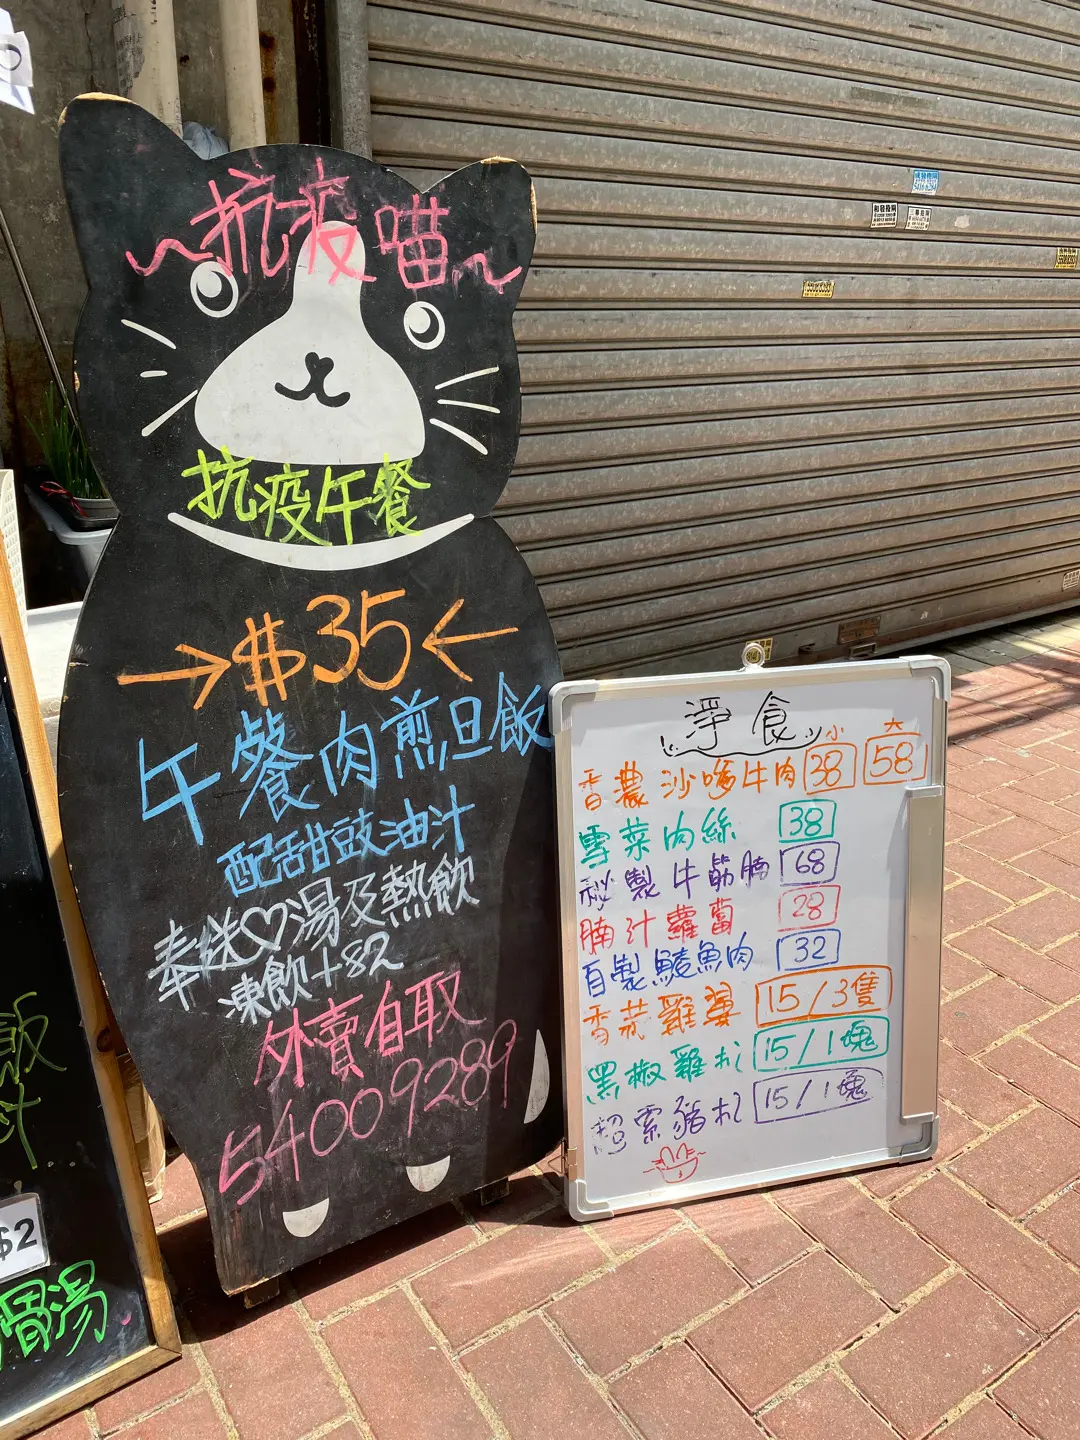 ~抗疫喵~
抗疫午餐
→$35←
午餐肉煎旦飯
配甜豉油汁
奉送♡湯及熱飲
凍飲+$2
外賣自取
54009289
淨食
小 大
香濃沙嗲牛肉 38 58
雪菜肉絲 38
秘製牛筋腩 68
腩汁蘿蔔 28
自製鯪魚肉 32
香茅雞翼 15/3隻
黑椒雞扒 15/1塊
豬扒 15/1塊
飯
汁
$2
骨湯